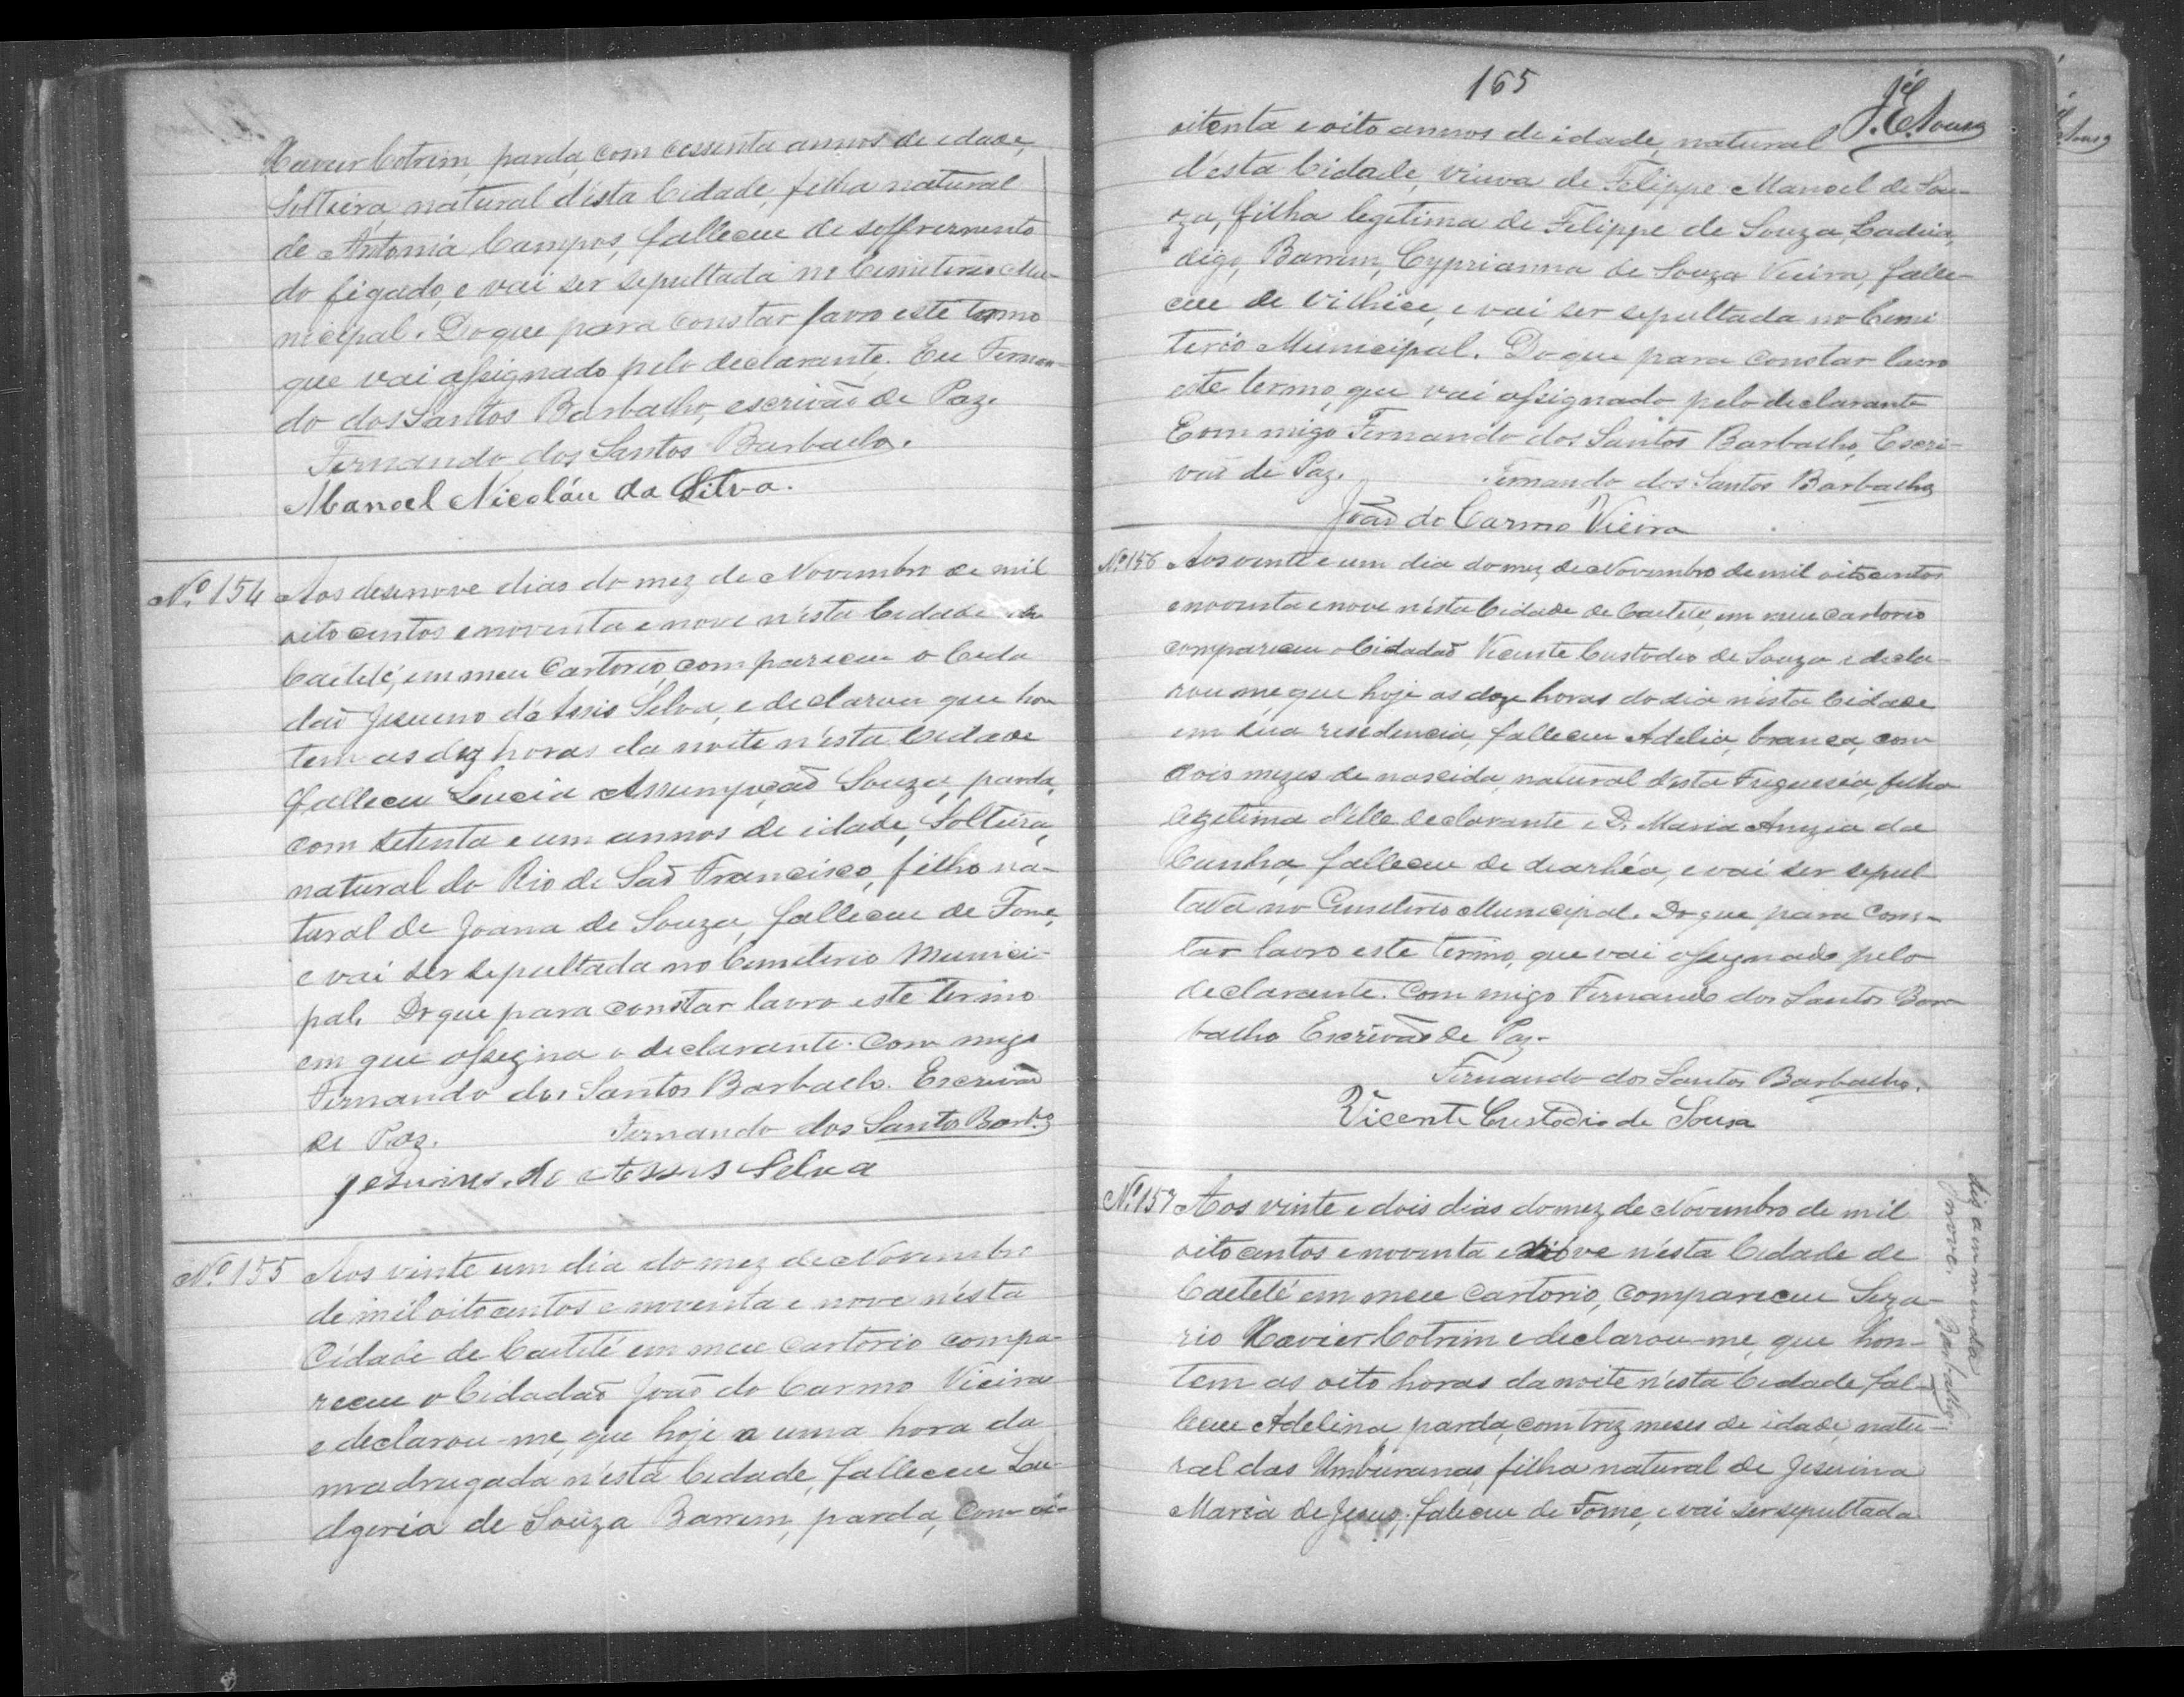 Xavier Cotrim, parda, com cessenta annos de idade,
Solteira natural d'ésta Cidade, filha natural
de Antonia Campos, falleceu de soffrermento
do figado, e vai ser sepultada no Cemiterio Mu-
nicipal. Do que para constar lavro este termo
que vai assignado pelo declarante. Eu Fernan-
do dos Santos Barbalho, escrivão de Paz.
Fernando dos Santos Barbalho.
Manoel Nicoláu da Silva.
Nº 154 Aos desenove dias do mez de Novembro de mil
oito centos e noventa e nove n'ésta Cidade de
Caeteté, em meu Cartorio, compareceu o Cida
dão Jesuino d'Assis Silva, e declarou que hon
tem as dez horas da noite n'ésta Cidade
falleceu Lucia Assumpção Souza, parda,
com setenta e um annos de idade, Solteira,
natural do Rio de São Francisco, filho na-
tural de Joana de Souza, falleceu de Fome,
e vai ser sepultada no Cemiterio Munici-
pal. Do que para constar lavro este termo
em que assigna o declarante. Com migo
Fernando dos Santos Barbalho. Escrivão
de Paz. Fernando dos Santos Barbº
Jesuino de Assis Silva
Nº 155 Aos vinte um dia do mez de Novembro
de mil oito centos e noventa e nove n'ésta
Cidade de Caeteté em meu cartorio compa-
receu o Cidadão João do Carmo Vieira
e declarou-me, que hoje a uma hora da
madrugada n'ésta Cidade, falleceu Lau-
dgeria de Souza Barrem, parda, com oi-
165
J. E. Souza
oitenta e oito annos de idade, natural
d'ésta Cidade, viuva de Felippe Manoel de Sou-
za, filha legitima de Felippe de Souza, Cadeia,
digo, Barrem, Cyprianna de Souza Vieira, falle-
ceu de vilhice, e vai ser sepultada no Cemi
terio Municipal. Do que para constar lavro
este termo, que vai assignado pelo declarante
Com migo Fernando dos Santos Barbalho, Escri-
vão de Paz. Fernando dos Santos Barbalho
João do Carmo Vieira
Nº 156 Aos vinte e um dia do mez de Novembro de mil oitocentos
e noventa e nove n'ésta Cidade de Caeteté, em meu cartorio
compareceu o Cidadão Vicente Custodio de Souza e decla-
rou me, que hoje as doze horas do dia n'ésta Cidade
em sua residencia, falleceu Adelia, branca, com
dois mezes de nascida, natural d'ésta Freguesia, filha
legitima d'elle declarante e D. Maria Anyzia da
Cunha, falleceu de diarhéa, e vai ser sepul-
tada no Cemiterio Municipal. Do que para cons-
tar lavro este termo, que vai assignado pelo
declarante. Com migo Fernando dos Santos Bar-
balho Escrivão de Paz.
Fernando dos Santos Barbalho.
Vicente Custodio de Sousa
Nº 157 Aos vinte e dois dias do mez de Novembro de mil
oito centos e noventa e nove n'ésta Cidade de
Caeteté em meu cartorio, compareceu Seza-
rio Xavier Cotrim e declarou-me, que hon-
tem as oito horas da noite n'ésta Cidade, fal-
leceu Adelina, parda, com trez meses de idade, natu-
ral das Umburanas, filha natural de Jesuina
Maria de Jesus, faleceu de Fome, e vai ser sepultada
diz a emmenda
nove. Barbalho